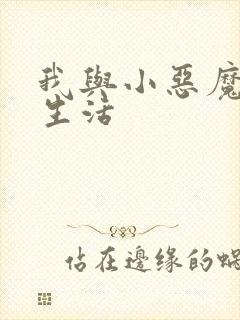 我與小惡魔
生活
佔在邊緣的蝸